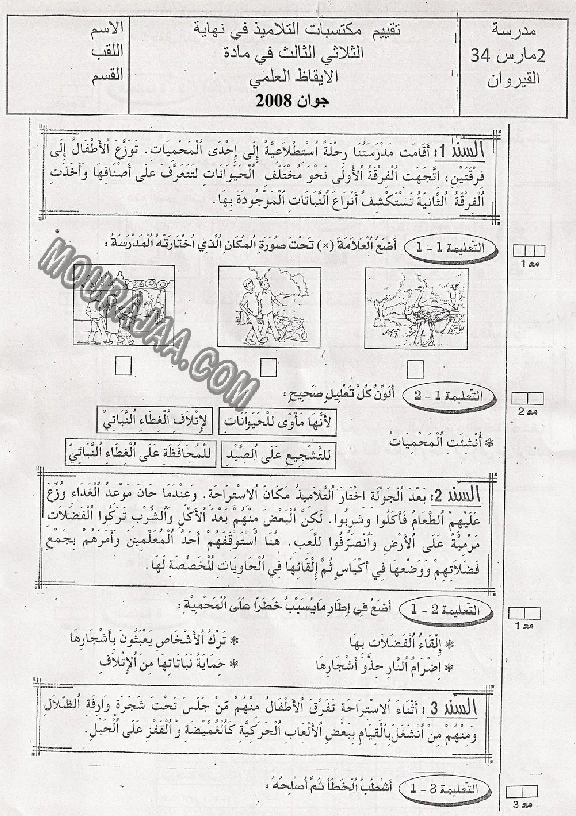 مدرسة
2 مارس 34
القيروان
تقييم مكتسبات التلاميذ في نهاية
الثلاثي الثالث في مادة
الإيقاظ العلمي
جوان 2008
الاسم
اللقب
القسم
السند 1: أَقَامَتْ مَدْرَسَتُنَا رِحْلَةً اُسْتِطْلَاعِيَّةً إِلَى إِحْدَى اَلْمَحْمِيَات. تَوَزَّعَ اَلْأَطْفَالُ إِلَى
فِرْقَتَيْنِ: اِتَّجَهَتِ اَلْفِرْقَةُ الأُولَى نَحْوَ مُخْتَلَفِ اَلْحَيَوَانَاتِ لِتَتَعَرَّفَ عَلَى أَصْنَافِهَا وَأَخَذَتِ
اَلْفِرْقَةُ الثَّانِيَةُ تَسْتَكْشِفُ أَنْوَاعَ النَّبَاتَاتِ اَلْمَوْجُودَةَ بِهَا.
التعليمة 1 - 1 أَضَعُ اَلْعَلَامَةَ (×) تَحْتَ صُورَةِ اَلْمَكَانِ اَلَّذِي اخْتَارَتْهُ اَلْمَدْرَسَةُ:
مع 1
MOURAJAA.COM
التعليمة 1 - 2 أُلَوِّنُ كُلَّ تَعْلِيلٍ صَحِيحٍ:
مع 2
* أُنْشِئَتِ اَلْمَحْمِيَات
لِأَنَّهَا مَأْوَى لِلْحَيَوَانَات
لِإِتْلَافِ اَلْغِطَاءِ النَّبَاتِيِّ
لِلتَّشْجِيعِ عَلَى الصَّيْدِ
لِلْمُحَافَظَةِ عَلَى اَلْغِطَاءِ النَّبَاتِيِّ
السند 2: بَعْدَ اَلْجَوْلَةِ اخْتَارَ التَّلَامِيذُ مَكَانَ الاِسْتِرَاحَةِ. وَعِنْدَمَا حَانَ مَوْعِدُ اَلْغَدَاءِ وُزِّعَ
عَلَيْهِمُ الطَّعَامُ فَأَكَلُوا وَشَرِبُوا. لَكِنَّ اَلْبَعْضَ مِنْهُمْ بَعْدَ الأَكْلِ وَالشُّرْبِ تَرَكُوا اَلْفَضَلَاتِ
مَرْمِيَّةً عَلَى الأَرْضِ وَانْصَرَفُوا لِلَّعِبِ. هُنَا اُسْتَوْقَفَهُمْ أَحَدُ اَلْمُعَلِّمِينَ وَأَمَرَهُمْ بِجَمْعِ
فَضَلَاتِهِمْ وَوَضْعِهَا فِي أَكْيَاسٍ ثُمَّ إِلْقَائِهَا فِي الْحَاوِيَاتِ الْمُخَصَّصَةِ لَهَا.
التعليمة 2 - 1 أَضَعُ فِي إِطَارٍ مَا يُسَبِّبُ خَطَرًا عَلَى اَلْمَحْمِيَّةِ:
مع 1
* إِلْقَاءُ اَلْفَضَلَاتِ بِهَا
* تَرْكُ الأَشْخَاصِ يَعْبَثُونَ بِأَشْجَارِهَا
* إِضْرَامُ النَّارِ حِذْوَ أَشْجَارِهَا
* حِمَايَةُ نَبَاتَاتِهَا مِنَ الإِتْلَافِ
السند 3: أَثْنَاءَ الاِسْتِرَاحَةِ تَفَرَّقَ الأَطْفَالُ مِنْهُمْ مَنْ جَلَسَ تَحْتَ شَجَرَةٍ وَارِفَةِ الظِّلَالِ
وَمِنْهُمْ مَنْ اُنْشَغَلَ بِالْقِيَامِ بِبَعْضِ الأَلْعَابِ اَلْحَرَكِيَّةِ كَالْغُمَّيْضَةِ وَ الْقَفْزِ عَلَى اَلْحَبْلِ.
التعليمة 3 - 1 أَشْطُبُ اَلْخَطَأَ ثُمَّ أُصْلِحُهُ:
مع 3